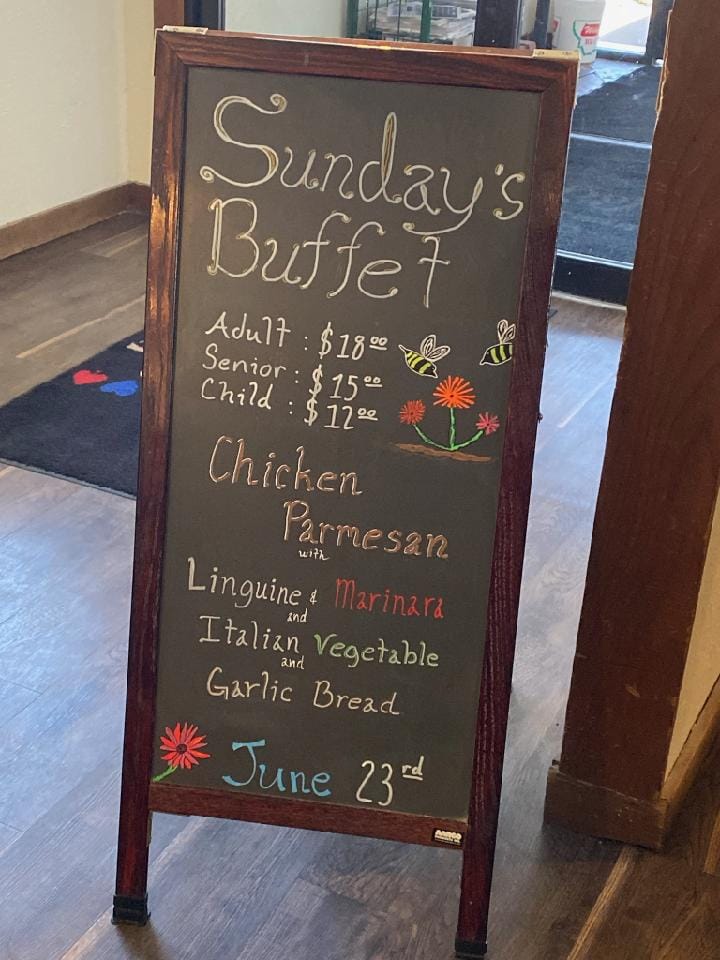 Sunday's
Buffet
Adult : $18⁰⁰
Senior : $15⁰⁰
Child : $12⁰⁰
Chicken
Parmesan
with
Linguine & Marinara
and
Italian Vegetable
and
Garlic Bread
June 23rd